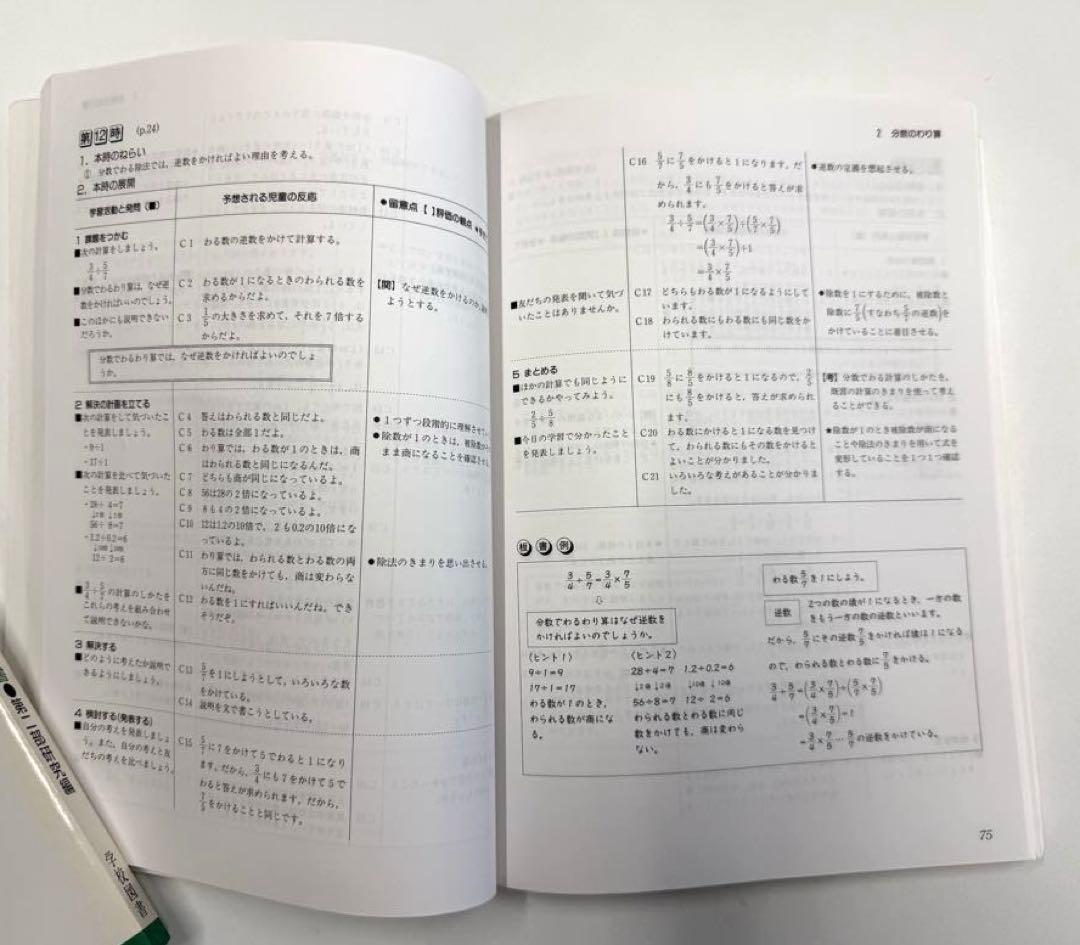 第12時 (p.24)
1．本時のねらい
① 分数でわる除法では、逆数をかければよい理由を考える。
2．本時の展開
学習活動と発問（■）
予想される児童の反応
●留意点【 】評価の観点
1 課題をつかむ
■次の計算をしましょう。
3/4÷5/7
■分数でわるわり算は、なぜ逆
数をかければいいのでしょう。
■このほかにも説明できない
だろうか。
C1 わる数の逆数をかけて計算する。
C2 わる数が1になるときのわられる数を
求めるからだよ。
C3 1/5の大きさを求めて、それを7倍する
からだよ。
【関】なぜ逆数をかけるのか、
ようとする。
分数でわるわり算では、なぜ逆数をかければよいのでしょ
うか。
2 解決の計画を立てる
■次の計算をして気づいたこ
とを発表しましょう。
・9÷1
・17÷1
■次の計算を比べて気づいた
ことを発表しましょう。
・28÷4=7
↓2倍 ↓2倍
56÷8=7
・1.2÷0.2=6
↓10倍 ↓10倍
12÷2=6
■3/4÷5/7の計算のしかたを
これらの考えを組み合わせ
て説明できないかな。
C4 答えはわられる数と同じだよ。
C5 わる数は全部1だよ。
C6 わり算では、わる数が1のときは、商
はわられる数と同じになるんだ。
C7 どちらも商が同じになっているよ。
C8 56は28の2倍になっているよ。
C9 8も4の2倍になっているよ。
C10 12は1.2の10倍で、2も0.2の10倍にな
っているよ。
C11 わり算では、わられる数とわる数の両
方に同じ数をかけても、商は変わらな
いんだね。
C12 わる数を1にすればいいんだね。でき
そうだぞ。
●1つずつ段階的に理解させて
●除数が1のときは、被除数が
まま商になることを確認させ
●除法のきまりを思い出させる。
3 解決する
■どのように考えたか説明で
きるようにしましょう。
C13 5/7を1にしようとして、いろいろな数
をかけている。
C14 説明を文で書こうとしている。
4 検討する(発表する)
■自分の考えを発表しましょ
う。また、自分の考えと友
だちの考えを比べましょう。
C15 5/7に7をかけて5でわると1になり
ます。だから、3/4にも7をかけて5で
わると答えが求められます。だから、
7/5をかけることと同じです。
2 分数のわり算
C16 5/7に7/5をかけると1になります。だ
から、3/4にも7/5をかけると答えが求
められます。
3/4÷5/7=(3/4×7/5)÷(5/7×7/5)
=(3/4×7/5)÷1
=3/4×7/5
●逆数の定義を想起させる。
■友だちの発表を聞いて気づ
いたことはありませんか。
C17 どちらもわる数が1になるようにして
います。
C18 わられる数にもわる数にも同じ数をか
けています。
●除数を1にするために、被除数と
除数に7/5(すなわち5/7の逆数)を
かけていることに着目させる。
5 まとめる
■ほかの計算でも同じように
できるかやってみよう。
2/5÷5/8
■今日の学習で分かったこと
を発表しましょう。
C19 5/8に8/5をかけると1になるので、2/5
にも8/5をかけると、答えが求められ
ます。
C20 わる数にかけると1になる数を見つけ
て、わられる数にもその数をかけると
よいことが分かりました。
C21 いろいろな考えがあることが分かりま
した。
【考】分数でわる計算のしかたを、
既習の計算のきまりを使って考え
ることができる。
●除数が1のとき被除数が商になる
ことや除法のきまりを用いて式を
変形していることを1つ1つ確認
する。
板書例
3/4÷5/7=3/4×7/5
⇩
分数でわるわり算はなぜ逆数を
かければよいのでしょうか。
〈ヒント1〉
9÷1=9
17÷1=17
わる数が1のとき、
わられる数が商にな
る。
〈ヒント2〉
28÷4=7 1.2÷0.2=6
↓2倍 ↓2倍 ↓10倍 ↓10倍
56÷8=7 12÷2=6
わられる数とわる数に同じ
数をかけても、商は変わら
ない。
わる数5/7を1にしよう。
逆数 2つの数の積が1になるとき、一方の数
をもう一方の数の逆数といいます。
だから、5/7にその逆数7/5をかければ積は1になる
ので、わられる数とわる数に7/5をかける。
3/4÷5/7=(3/4×7/5)÷(5/7×7/5)
=(3/4×7/5)÷1
=3/4×7/5…5/7の逆数をかけている。
75
学校図書